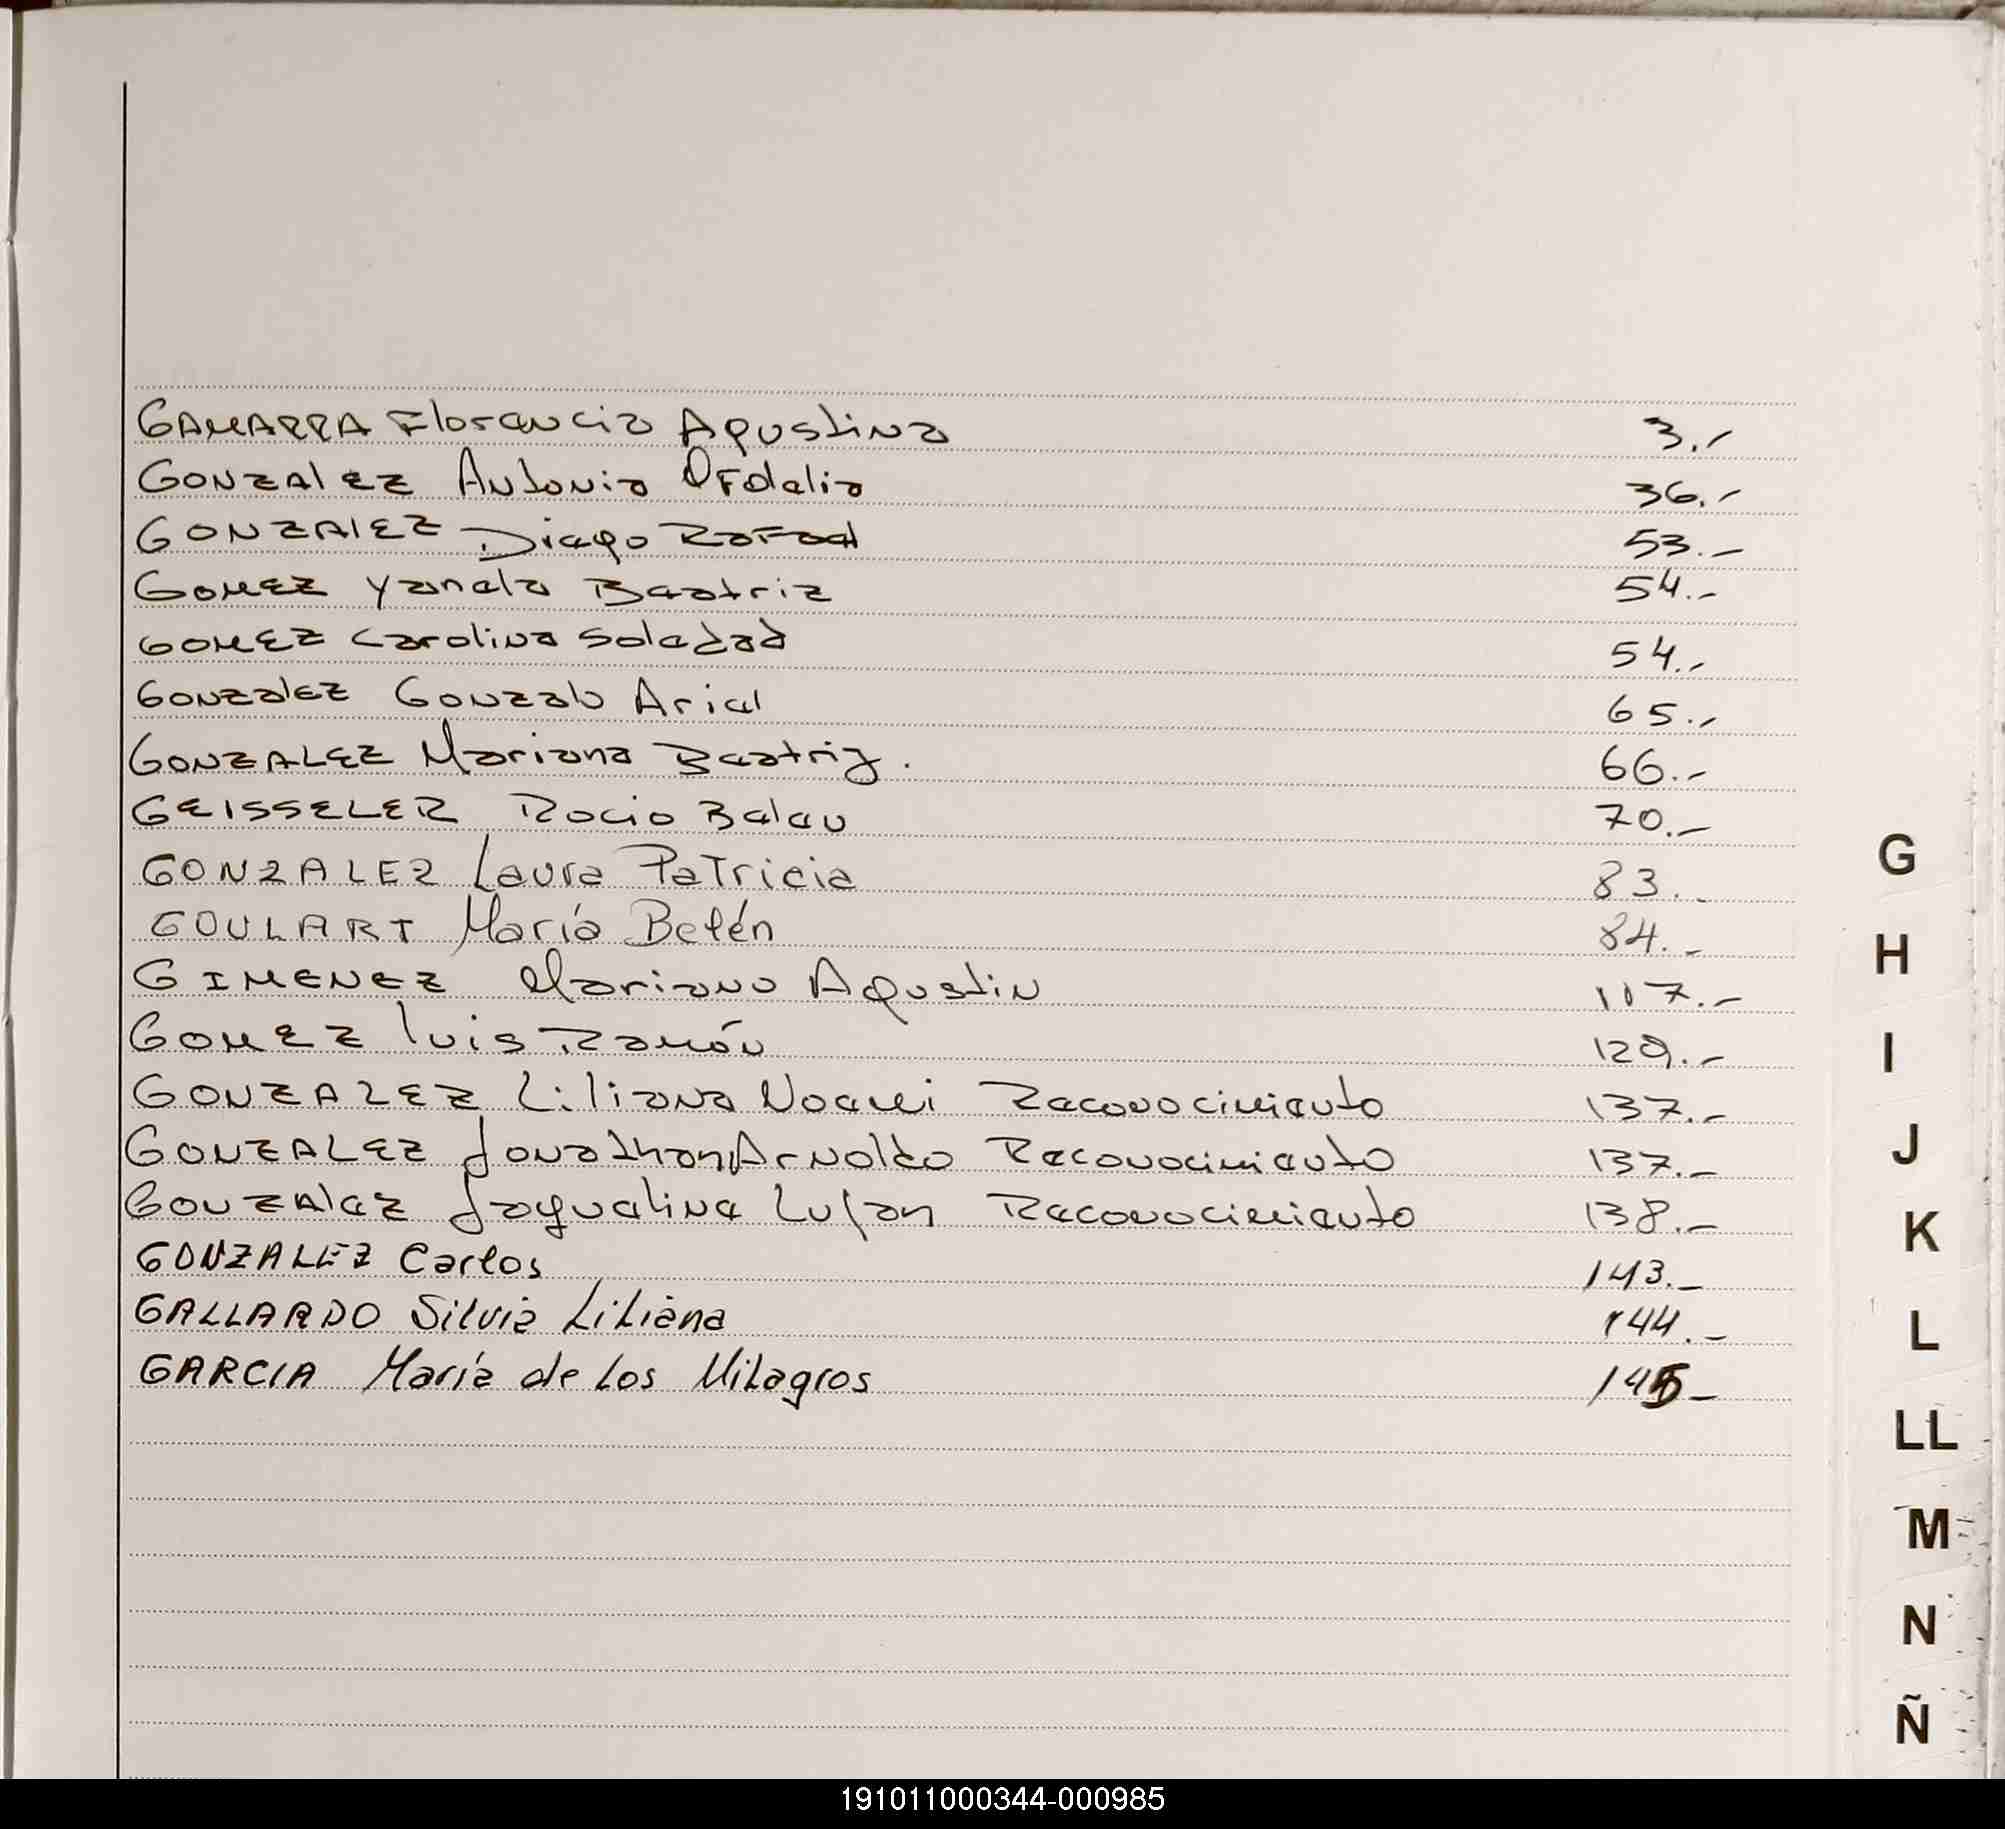 GAMARRA Florencia Agustina 3.-
GONZALEZ Antonia Ofdelia 36.-
GONZALEZ Diego Rafael 53.-
GOMEZ Yanela Beatriz 54.-
GOMEZ Carolina Soledad 54.-
GONZALEZ Gonzalo Ariel 65.-
GONZALEZ Mariana Beatriz. 66.-
GEISSELER Rocio Belen 70.-
GONZALEZ Laura Patricia 83.-
GOULART María Belén 84.-
GIMENEZ Mariano Agustin 117.-
GOMEZ Luis Ramón 129.-
GONZALEZ Liliana Noemi Reconocimiento 137.-
GONZALEZ Jonathan Arnoldo Reconocimiento 137.-
GONZALEZ Jaquelina Lujan Reconocimiento 138.-
GONZALEZ Carlos 143.-
GALLARDO Silvia Liliana 144.-
GARCIA María de los Milagros 145-
G
H
I
J
K
L
LL
M
N
Ñ
191011000344-000985